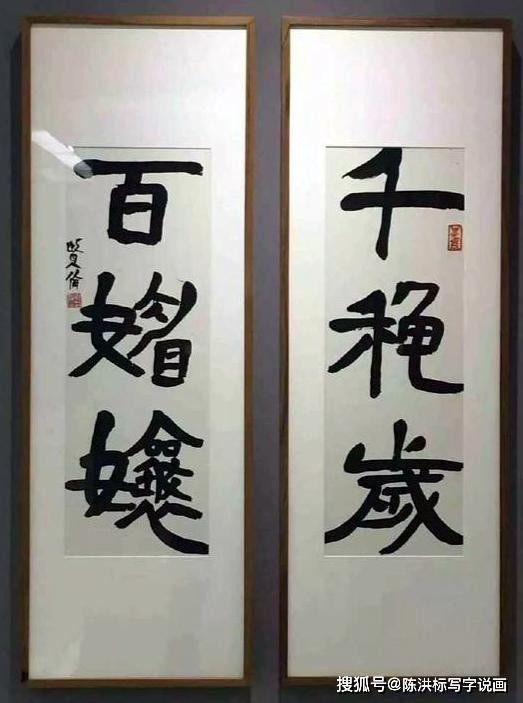 千穐歲
百媚孃
搜狐号@陈洪标写字说画